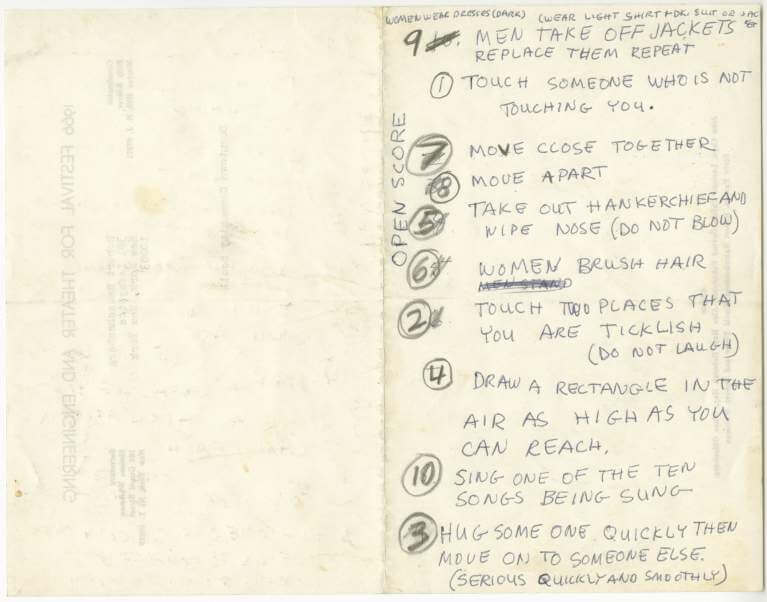 WOMEN WEAR DRESSES (DARK) (WEAR LIGHT SHIRT + DK. SUIT OR JACKET
9. MEN TAKE OFF JACKETS
REPLACE THEM REPEAT
1 TOUCH SOMEONE WHO IS NOT
TOUCHING YOU.
OPEN SCORE
7 MOVE CLOSE TOGETHER
8 MOVE APART
5 TAKE OUT HANKERCHIEF AND
WIPE NOSE (DO NOT BLOW)
6 WOMEN BRUSH HAIR
MEN STAND
2 TOUCH TWO PLACES THAT
YOU ARE TICKLISH
(DO NOT LAUGH)
4 DRAW A RECTANGLE IN THE
AIR AS HIGH AS YOU
CAN REACH.
10 SING ONE OF THE TEN
SONGS BEING SUNG
3 HUG SOME ONE QUICKLY THEN
MOVE ON TO SOMEONE ELSE.
(SERIOUS QUICKLY AND SMOOTHLY)
1966 FESTIVAL FOR THEATER AND ENGINEERING